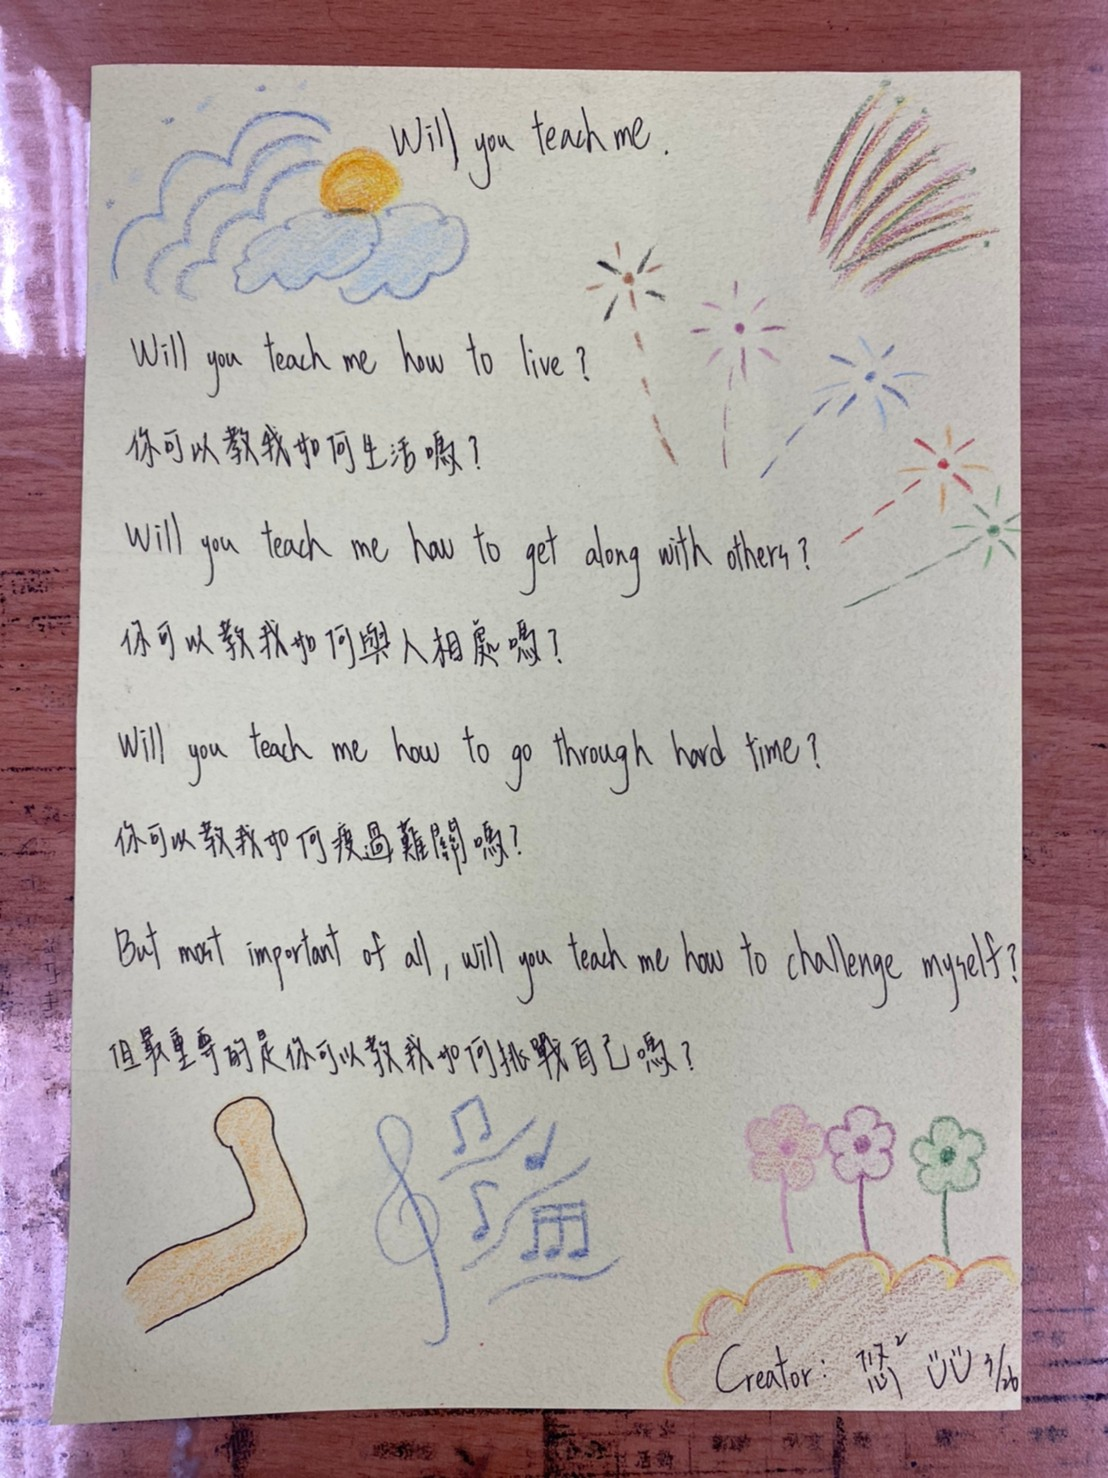 Will you teach me.
Will you teach me how to live?
你可以教我如何生活嗎?
Will you teach me how to get along with others?
你可以教我如何與人相處嗎?
Will you teach me how to go through hard time?
你可以教我如何度過難關嗎?
But most important of all, will you teach me how to challenge myself?
但最重要的是你可以教我如何挑戰自己嗎?
Creator: 悠² 3/26
活動